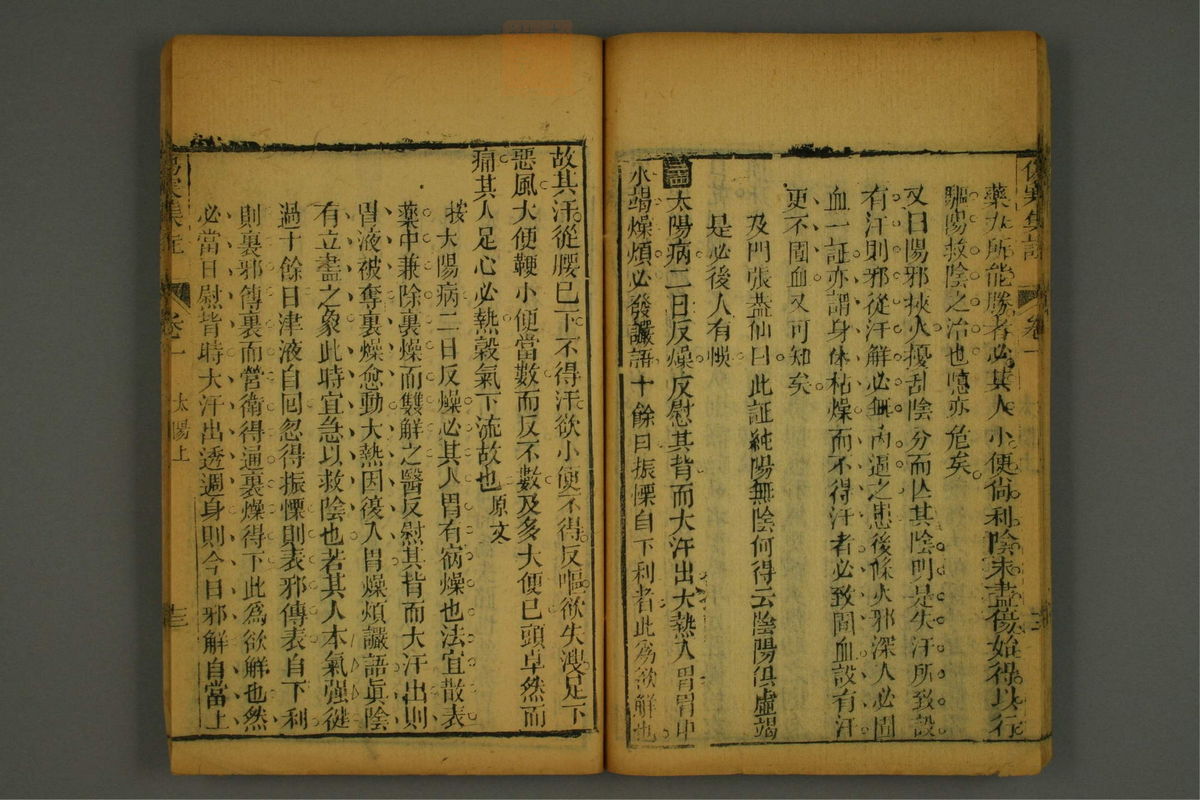 藥力所能勝者必其人小便尚利陰未盡傷始得以行
驅陽救陰之治也噫亦危矣
又曰陽邪挾火擾乱陰分而亾其陰明是失汗所致設
有汗則邪從汗解必無內逼之患後條火邪深入必圊
血一証亦謂身体枯燥而不得汗者必致圊血設有汗
更不圊血又可知矣
及門張蓋仙曰此証純陽無陰何得云陰陽俱虛竭
是必後人有悞
太陽病二日反燥反熨其背而大汗出大熱入胃胃中
水竭燥煩必發讝語十餘曰振慄自下利者此爲欲解也
傷寒集註
卷一
故其汗從腰已下不得汗欲小便不得反嘔欲失溲足下
惡風大便鞕小便當數而反不數及多大便已頭卓然而
痛其人足心必熱榖氣下流故也原文
按大陽病二日反燥必其人胃有宿燥也法宜散表
藥中兼除裏燥而雙解之醫反熨其背而大汗出則
胃液被奪裏燥愈動大熱因復入胃燥煩讝語眞陰
有立盡之象此時宜急以救陰也若其人本氣强徤
過十餘日津液自囘忽得振慄則表邪傳表自下利
則裏邪傳裏而營衛得通裏燥得下此爲欲解也然
必當日熨背時大汗出透週身則今日邪解自當上
卷一
太陽上